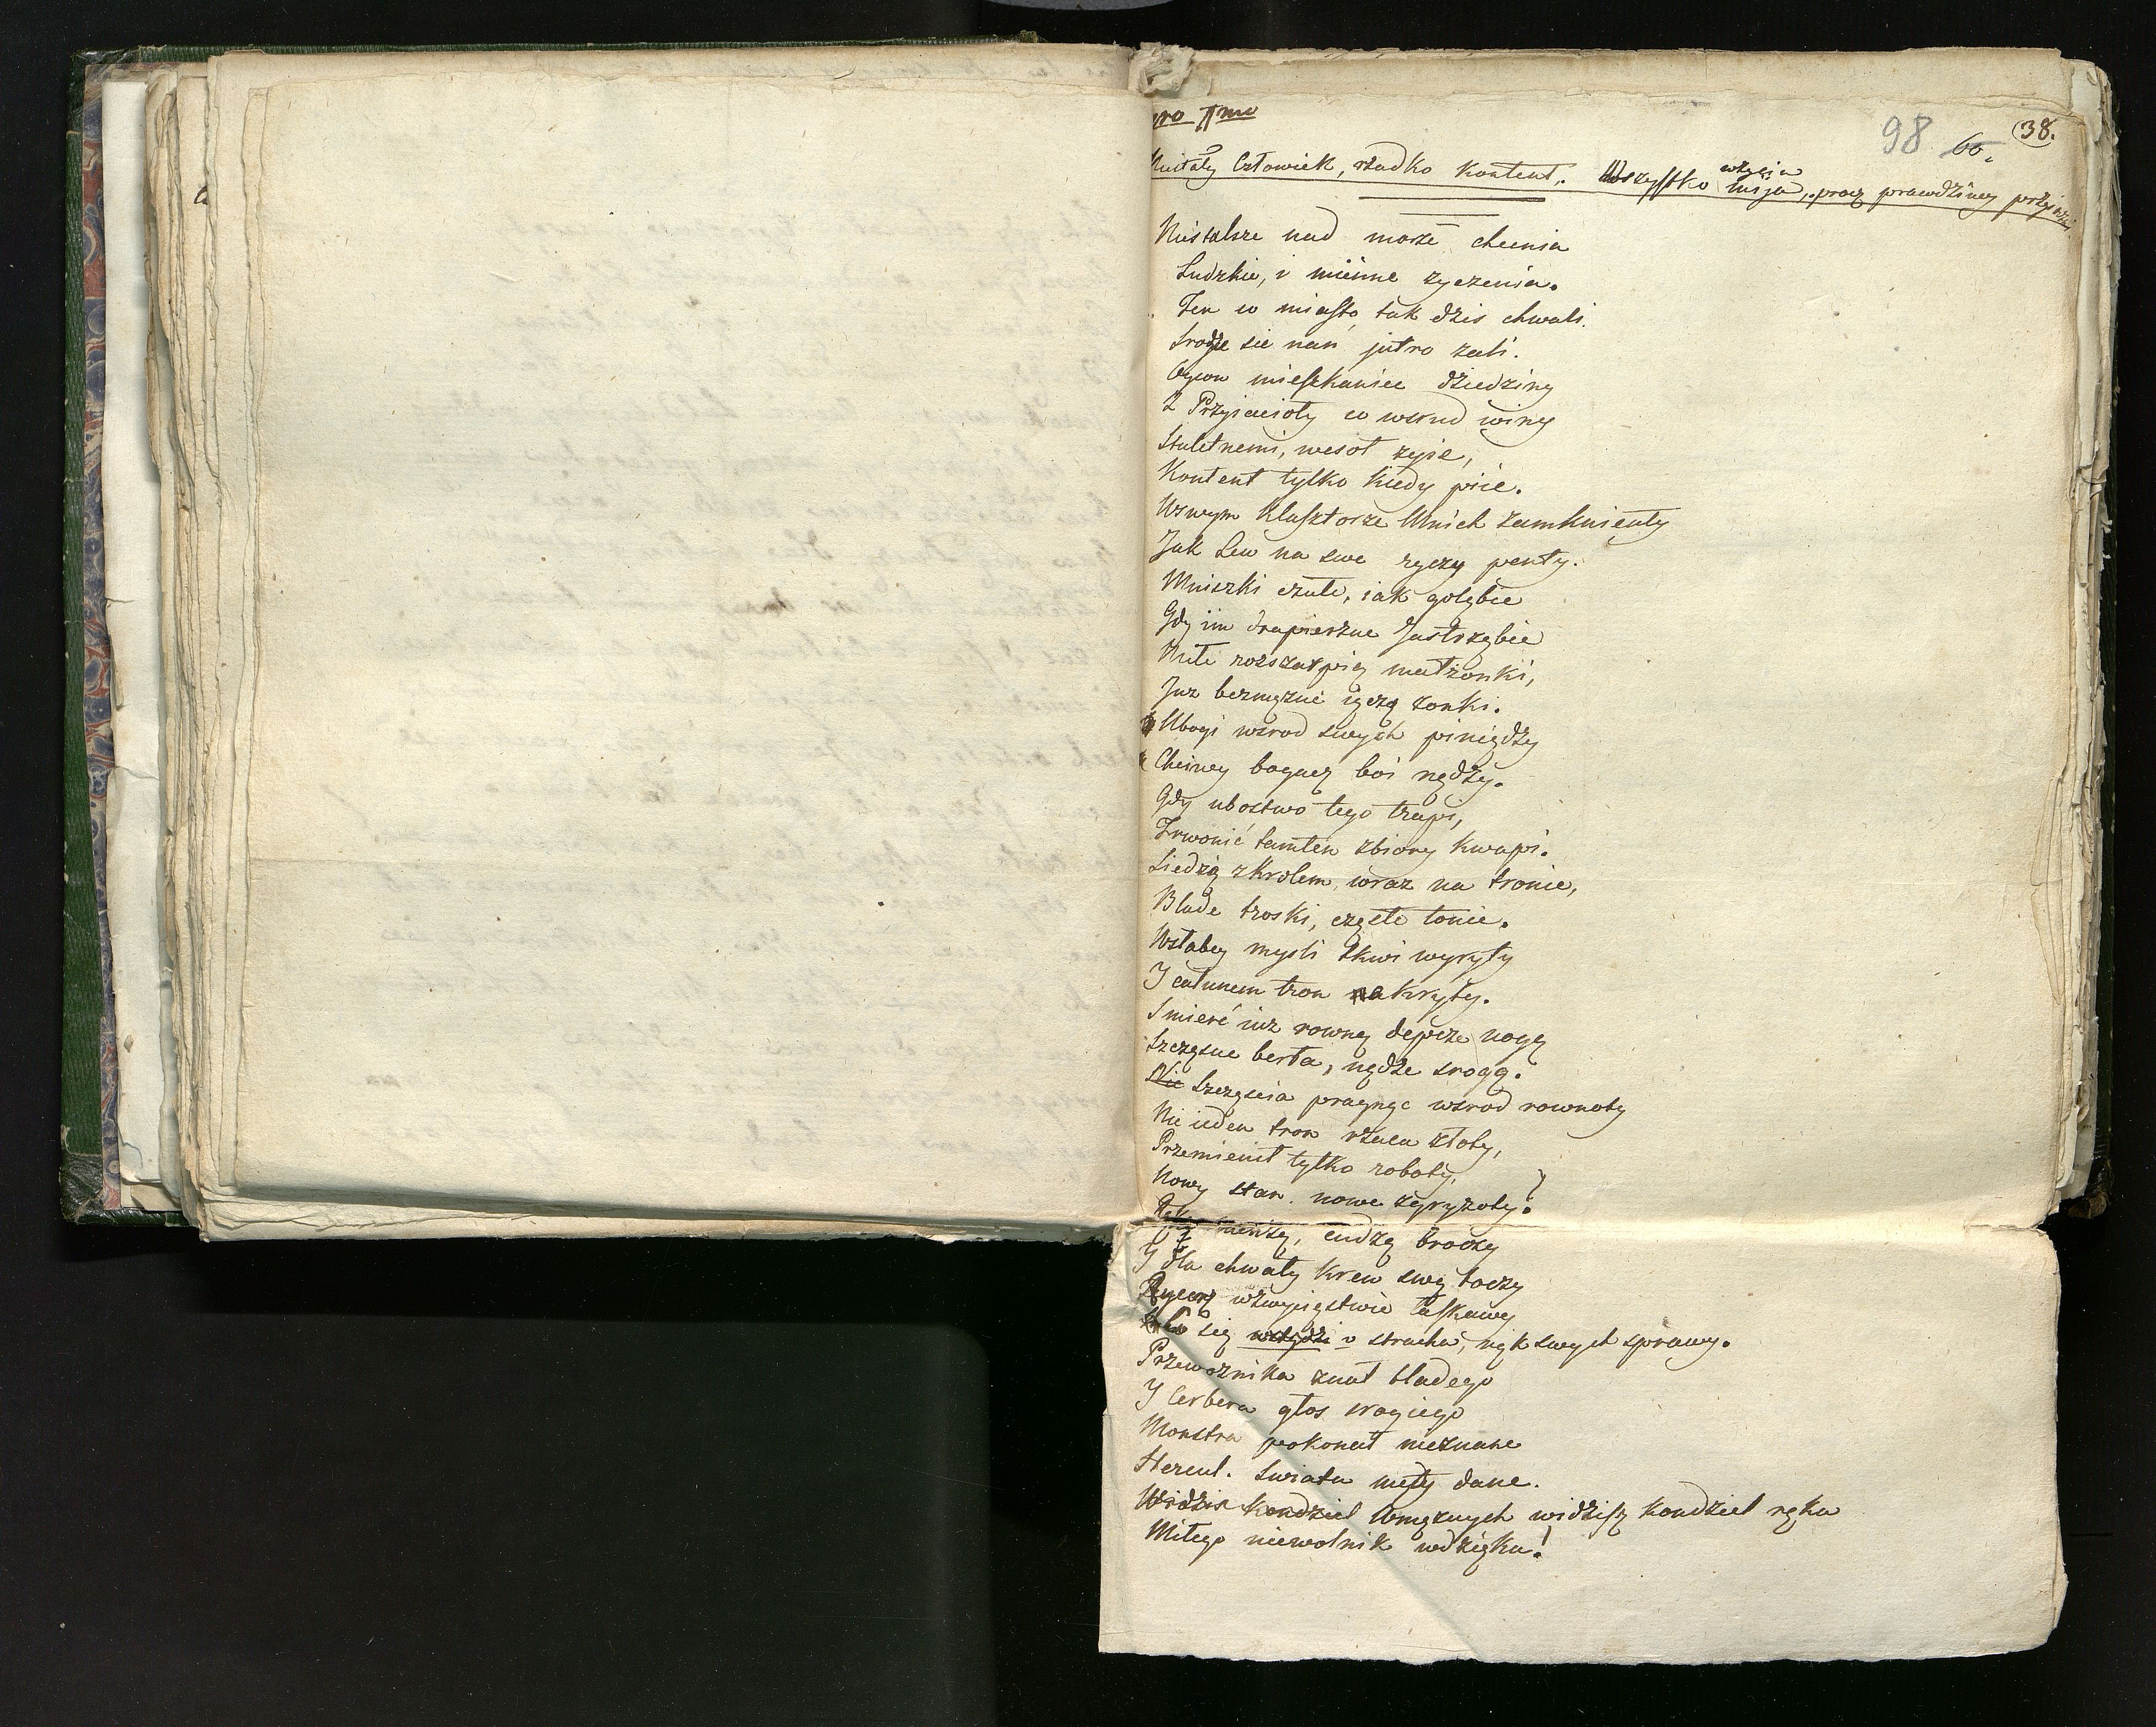 pro IImo
98 60. 38.
Niestały Człowiek, rzadko kontent. Wszystko mija, procz prawdziwey przyjazni
Niestalsze nad morze chcenia
Ludzkie, i mienne zyczenia.
Ten co miasto tak dzis chwali.
Srodze sie nan jutro zali.
Ogwon mieszkaniec dziedziny
Z Przyiacioły co wsrud winy
Stuletnemi, wesoł zyie,
Kontent tylko kiedy piie.
W swym Klasztorze Mnich zamknienty
Jak Lew na swe ryczy penty.
Mniszki czułe, iak gołębie
Gdy im drapieżne Jastrzębie
Miłe rozszarpią małżonki,
Juz bezmężne ięczą zonki.
Ubogi wsrod swych piniędzy
Chciwy bogacz boi nędzy.
Gdy ubostwo tego trapi,
Trwonić tamten zbiory kwapi.
Siedzą z Krolem, wraz na tronie,
Blade troski, częste tonie.
W słabey mysli tkwi wyryty
I całunem tron nakryty.
Smierć iuz rowną depcze nogą
Szczęsne berła, nędze srogą.
Szczęscia pragnąc wsrod rownoty
Nie ieden tron rzuca złoty,
Przemienił tylko roboty,
Nowy stan. nowe zgryzoty!
mensz, cudzą broczy
I dla chwały krew swą toczy
Rycerz w zwyięstwie łaskawy
się wstydzi i stracha, rąk swych sprawy.
Przewoznika znał bladego
I Cerbera głos srogiego
Monstra pokonał nieznane
Hercul. Swiatu mety dane.
Widzis kondziel Umęznych widzisz kondziel ręku
Miłego niewolnik wdzięku!